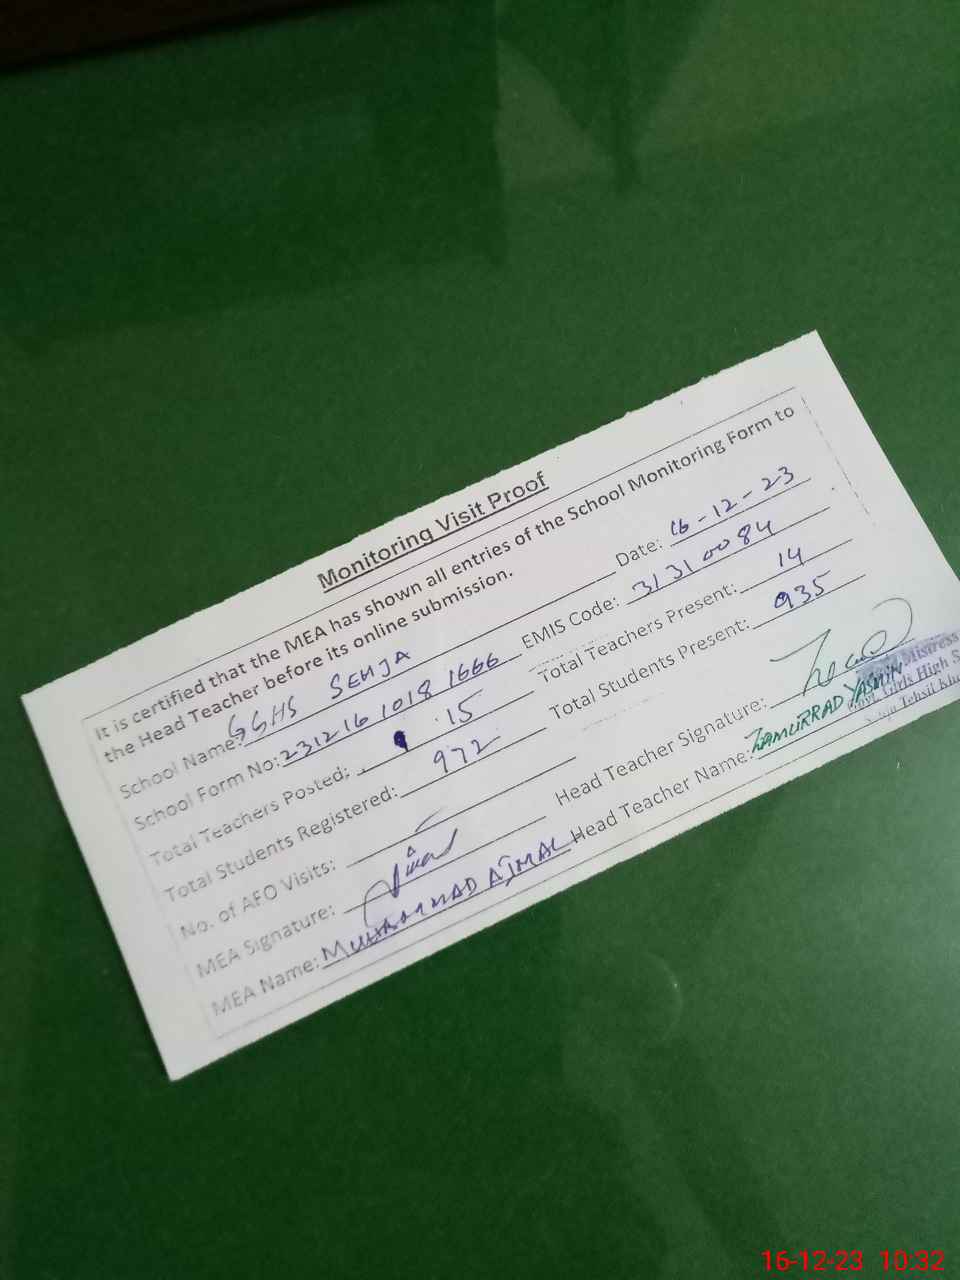 Monitoring Visit Proof
It is certified that the MEA has shown all entries of the School Monitoring Form to
the Head Teacher before its online submission.
School Name: GGHS SEHJA Date: 16-12-23
School Form No: 2312161018 1666 EMIS Code: 31310084
Total Teachers Posted: 15 Total Teachers Present: 14
Total Students Registered: 972 Total Students Present: 935
No. of AEO Visits: —
MEA Signature: Head Teacher Signature:
MEA Name: MUHAMMAD AJMAL Head Teacher Name: ZAMURRAD YASMIN
Mistress
Govt. Girls High S
Sehja Tehsil Kha
16-12-23 10:32